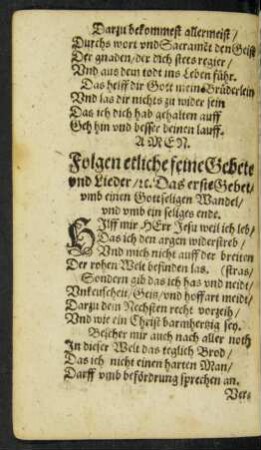 Darzu bekommest allermeist /
Durchs wort vnd Sacramēt den Geist
Der gnaden / der dich stets regier /
Vnd aus dem todt ins Leben führ.
Das helff dir Gott mein Brüderlein
Vnd las dir nichts zu wider sein
Das ich dich hab gehalten auff
Geh hin vnd besser deinen lauff.
AMEN.
Folgen etliche feine Gebete
vnd Lieder / ꝛc. Das erste Gebet /
vmb einen Gottseligen Wandel /
vnd vmb ein seliges ende.
HIlff mir HErr Jesu weil ich leb /
Das ich den argen widerstreb /
Vnd mich nicht auff der breiten
Der rohen Welt befinden las. (stras /
Sondern gib das ich has vnd neidt /
Vnkeuscheit / Geitz / vnd hoffart meidt /
Darzu dem Nechsten recht vorzeih /
Vnd wie ein Christ barmhertzig sey.
Bescher mir auch nach aller noth
In dieser Welt das teglich Brod /
Das ich nicht einen harten Man /
Darff vmb befördrung sprechen an.
Ver⸗